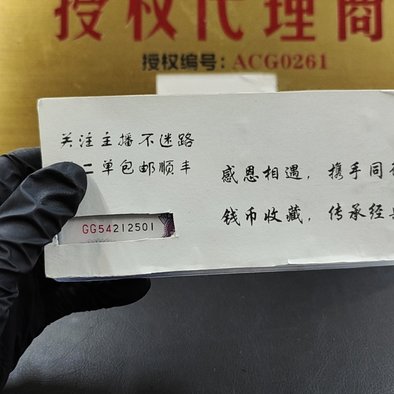 授权代理商
授权编号：ACG0261
关注主播不迷路
二单包邮顺丰
感恩相遇，携手同
钱币收藏，传承经
GG54212501